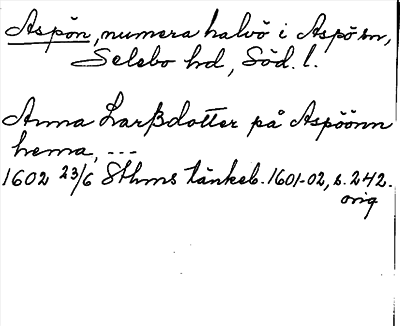 Aspön, numera halvö i Aspö sn,
Selebo hd, Söd. l.
Anna Larßdotter på Aspöönn
hema, ---
1602 23/6 Sthms tänkeb. 1601-02, s. 242.
orig